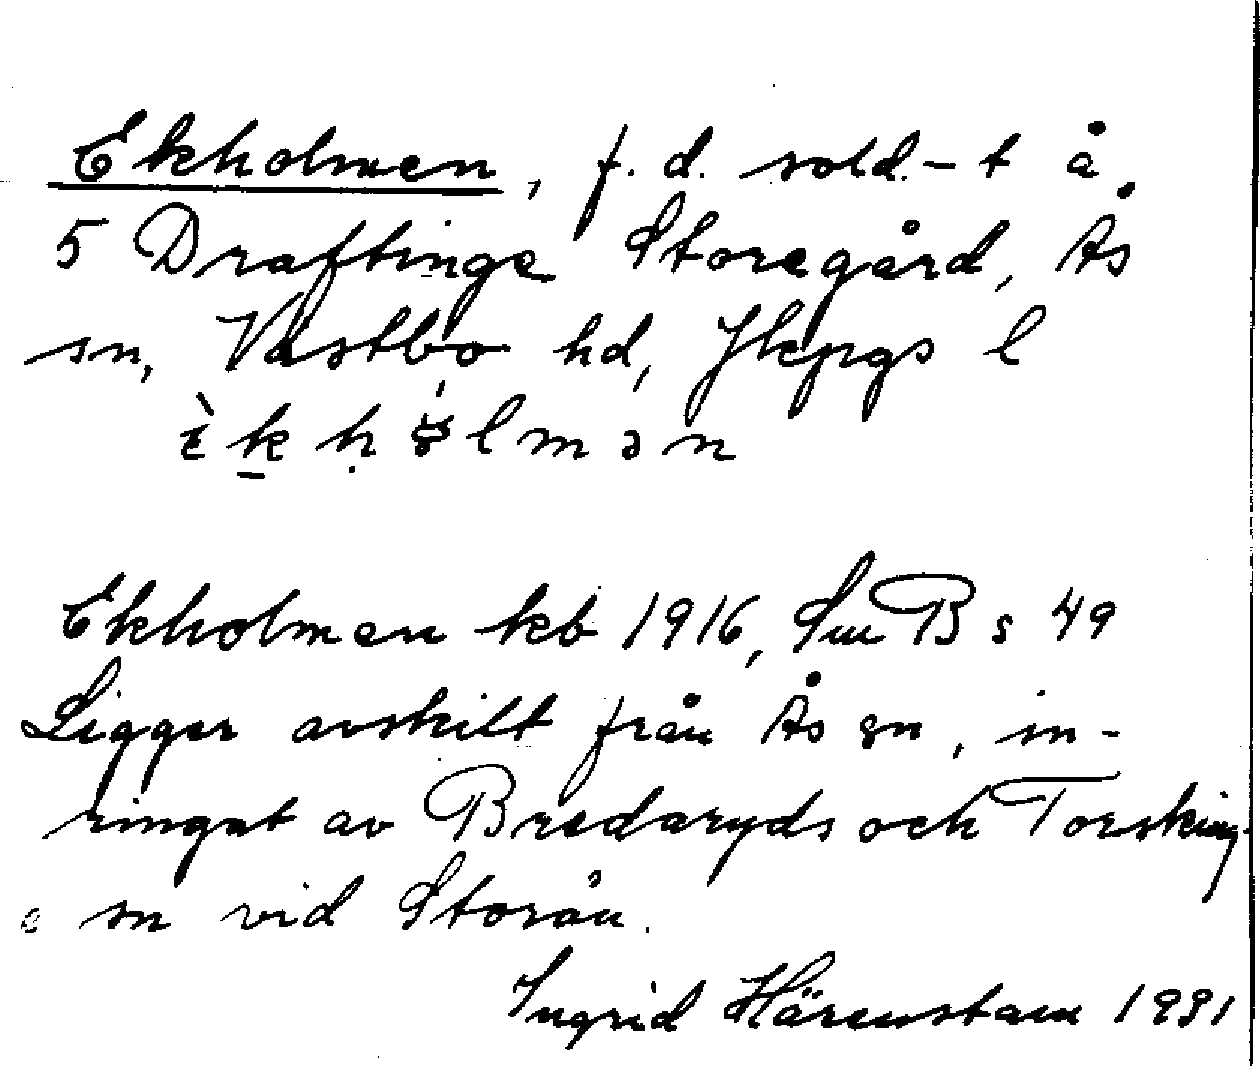 Ekholmen, f. d. sold.-t å
5 Draftinge Storegård, Ås
sn, Västbo hd, Jkpgs l
Ekholmen kb 1916, SmB s 49
Ligger avskilt från Ås sn, in-
ringat av Bredaryds och Torsking-
e sn vid Storån.
Ingrid Härenstam 1991